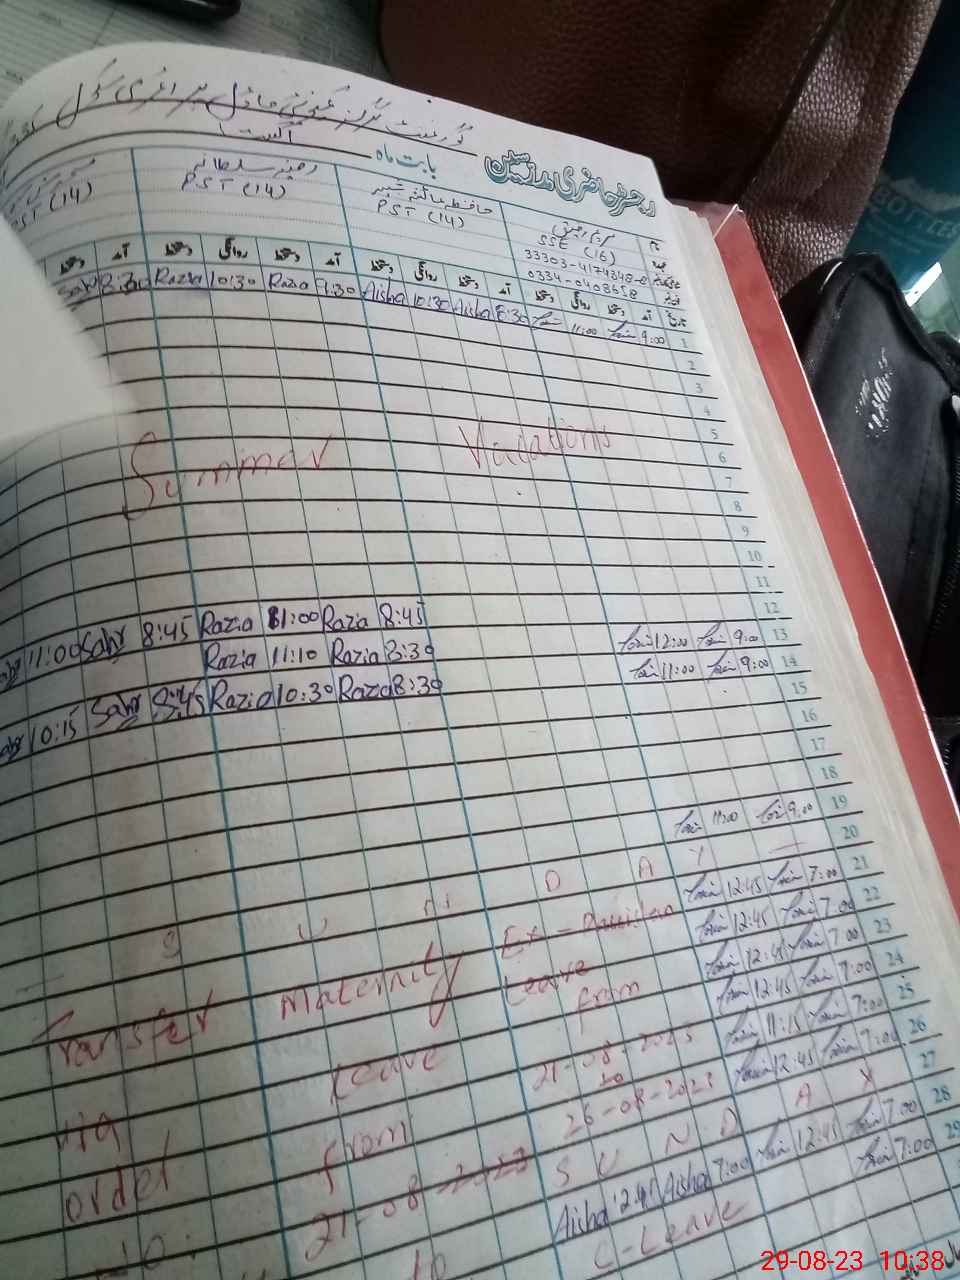 گورنمنٹ گرلز کمیونٹی ماڈل پرائمری سکول
رجسٹر حاضری مدرسین بابت ماہ اگست
نام مریم رفیق حافظہ عائشہ شبیر رضیہ سلطانہ
عہدہ SSE (16) PST (14) PST (14) PST (14)
33303-4174348-8
0334-0408658
تاریخ آمد دستخط روانگی دستخط آمد دستخط روانگی دستخط آمد دستخط روانگی دستخط آمد
1 9:00 11:00 8:30 Aisha 10:30 Aisha 8:30 Razia 10:30 Razia 8:30 Sahr
2
3
4
5
Summer Vacations
6
7
8
9
10
11
12
13 9:00 12:00 8:45 Razia 11:00 Razia 8:45 Sahr 11:00
14 9:00 11:00 8:30 Razia 11:10 Razia
15 8:30 Razia 10:30 Razia 8:45 Sahr 10:15
16
17
18
19 9:00 11:00
20 S U N D A Y
21 7:00 12:45
22 7:00 12:45
23 7:00 12:45
24 7:00 12:45
25 7:00 11:15
26 7:00 12:45
27 S U N D A Y
28 7:00 12:45 7:00 Aisha 12:45 Aisha
29 7:00 C-Leave
Ex-Pakistan
Leave
from
21-08-2023
to
26-08-2023
Maternity
Leave
from
21-08-2023
to
Transfer
via
order
29-08-23 10:38